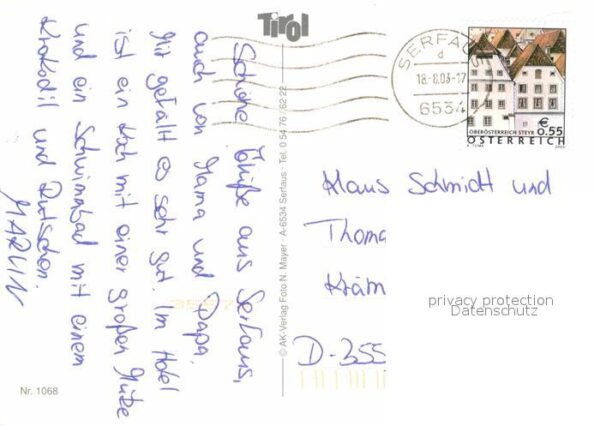 Tirol
Schöne Grüße aus Serfaus,
auch von Mama und Papa.
Mir gefällt es sehr gut. Im Hotel
ist ein Koch mit einer großen Mütze
und ein Schwimmbad mit einem
Krokodil und Rutschen.
MARVIN
Nr. 1068
© AK-Verlag Foto N. Mayer · A-6534 Serfaus · Tel. 0 54 76 / 62 22
SERFAUS
d
18.-8.03-17
6534
€ 0.55
OBERÖSTERREICH STEYR
ÖSTERREICH
Klaus Schmidt und
Thoma
Kräm
D-355
privacy protection
Datenschutz